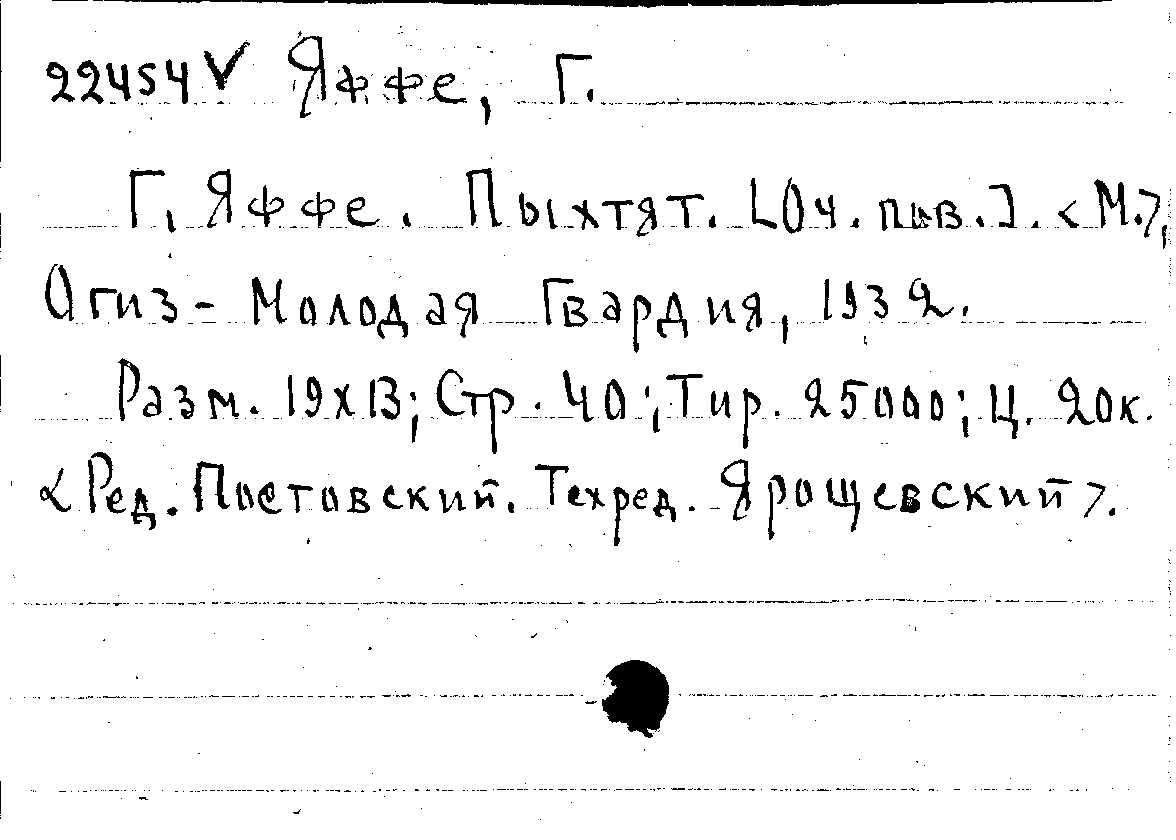 22454 V Яффе, Г.
Г. Яффе. Пыхтят. [Оч. пив.]. <М.>,
Огиз - Молодая Гвардия, 1932.
Разм. 19х13; Стр. 40; Тир. 25000; Ц. 20к.
<Ред. Постовский. Техред. Ярощевский>.